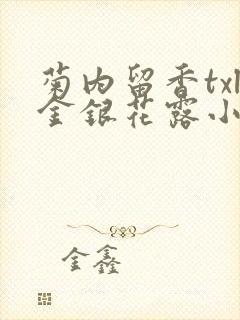 菊内留香txt
金银花露小
金鑫